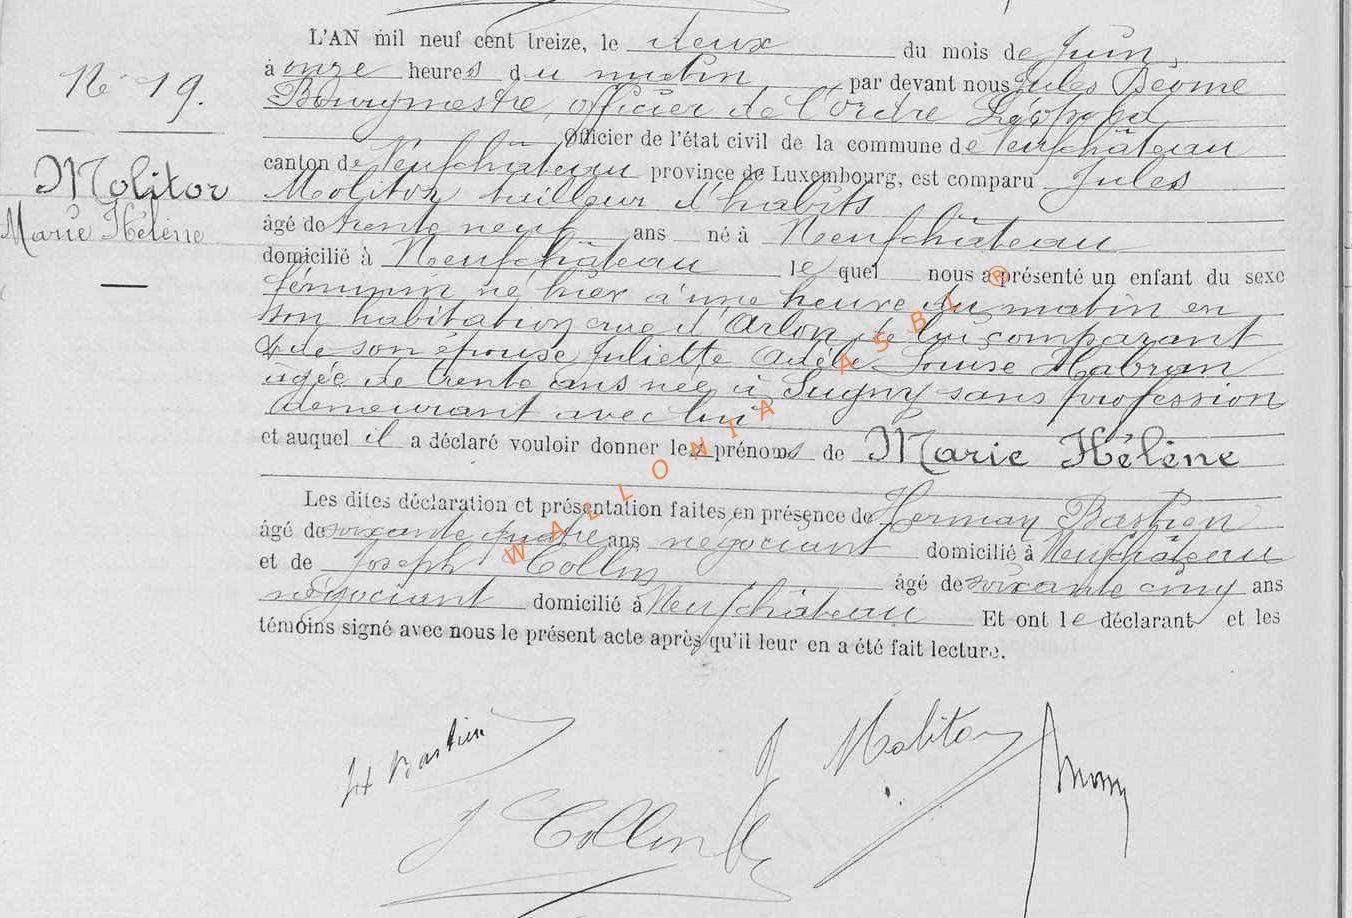 L'AN mil neuf cent treize, le deux du mois de Juin,
N° 19.
à onze heures du matin par devant nous Jules
Bourgmestre, officier de l'ordre Léopold
Officier de l'état civil de la commune de Neufchâteau
canton de Neufchâteau province de Luxembourg, est comparu Jules
Molitor
Marie Hélène
Molitor tailleur d'habits
âgé de trente neuf ans né à Neufchâteau
domicilié à Neufchâteau lequel nous a présenté un enfant du sexe
féminin né hier à une heure du matin en
son habitation rue d'Arlon, de lui comparant
& de son épouse Juliette Adèle Louise Habran
âgée de trente ans née à Sugny sans profession
demeurant avec lui
et auquel il a déclaré vouloir donner les prénoms de Marie Hélène
Les dites déclaration et présentation faites en présence de Herman Bastien
âgé de soixante quatre ans négociant domicilié à Neufchâteau
et de Joseph Collin âgé de soixante cinq ans
négociant domicilié à Neufchâteau Et ont le déclarant et les
témoins signé avec nous le présent acte après qu'il leur en a été fait lecture.
H Bastien
J Molitor
J Collin
WALLONIA ASBL ®